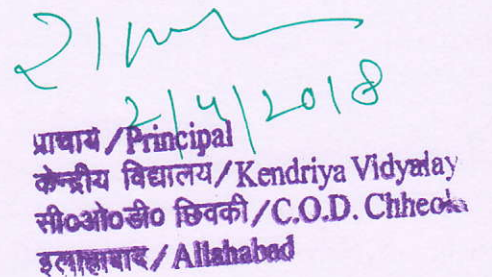 2/4/2018
प्राचार्य/Principal
केन्द्रीय विद्यालय/Kendriya Vidyalay
सी०ओ०डी० छिवकी/C.O.D. Chheoki
इलाहाबाद/Allahabad